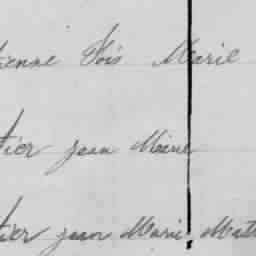 ienne Fois Marie
tier jean Marie
tier jean Marie Mat